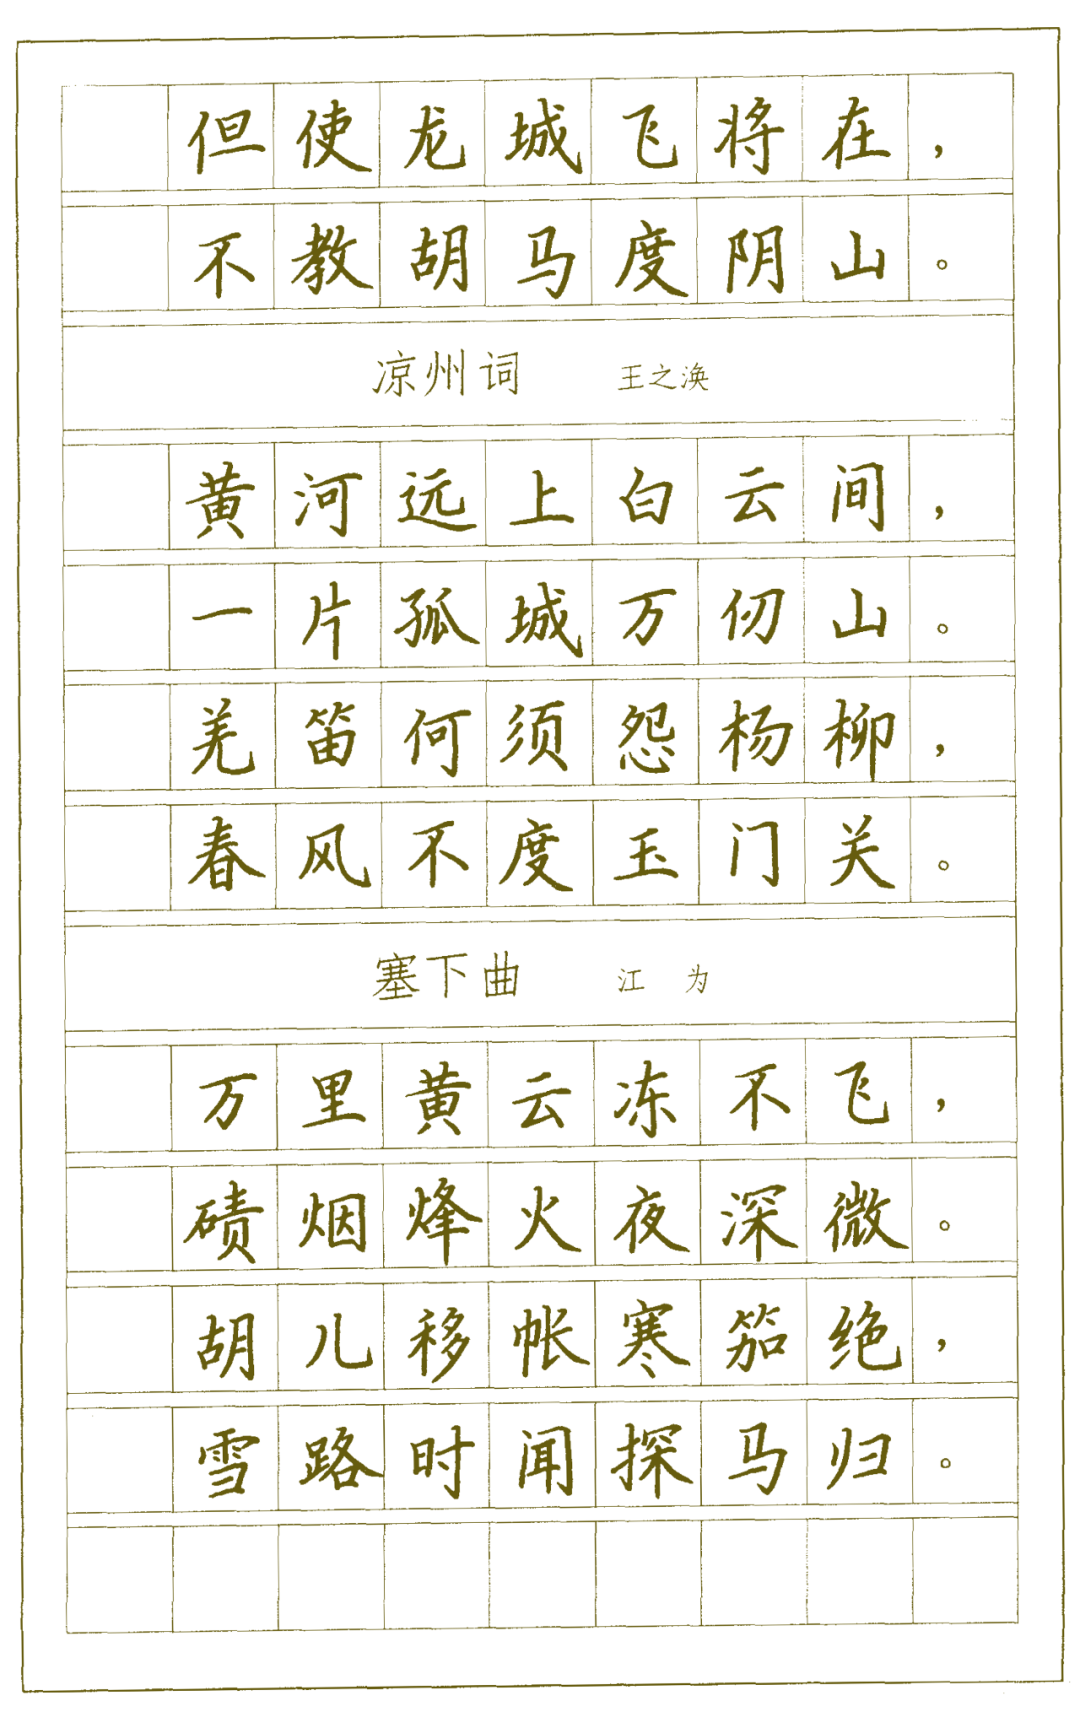 但使龙城飞将在，
不教胡马度阴山。
凉州词 王之涣
黄河远上白云间，
一片孤城万仞山。
羌笛何须怨杨柳，
春风不度玉门关。
塞下曲 江为
万里黄云冻不飞，
碛烟烽火夜深微。
胡儿移帐寒笳绝，
雪路时闻探马归。